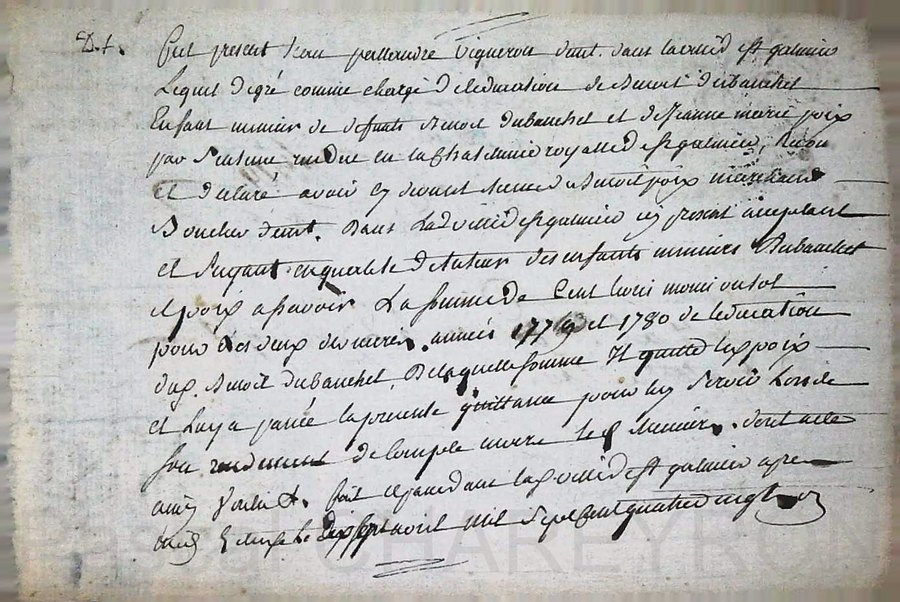 D.f. Fut present Jean pallandre vigneron dmt. dans la ville de st galmier
Lequel de gré comme chargé de leducation de Benoit dubanchet
Enfant mineur de defunts Benoit dubanchet et de Jeanne marie poix
par Sentence rendue en la Chatelenie royalle de st galmier,
et declaré avoir cy devant de Benoit poix marchand
Boucher demt. Dans La de ville de st galmier cy present acceptant
et Suyant en qualité de tuteur des enfants mineurs Dubanchet
et poix a Savoir La somme de Cent trois
pour les deux dernieres années 1779 et 1780 de leducation
dud. Benoit dubanchet, De laquelle somme Il quitte led. poix
et Luy a passée la presente quittance pour luy Servir Lors de
son rendement de Compte envers les dt mineurs. dont acte
ainsy Voulu &. fait et passé aud. st galmier apres
midy Le dix sept avril Mil Sept Cent quatre vingt
CHAREYRON